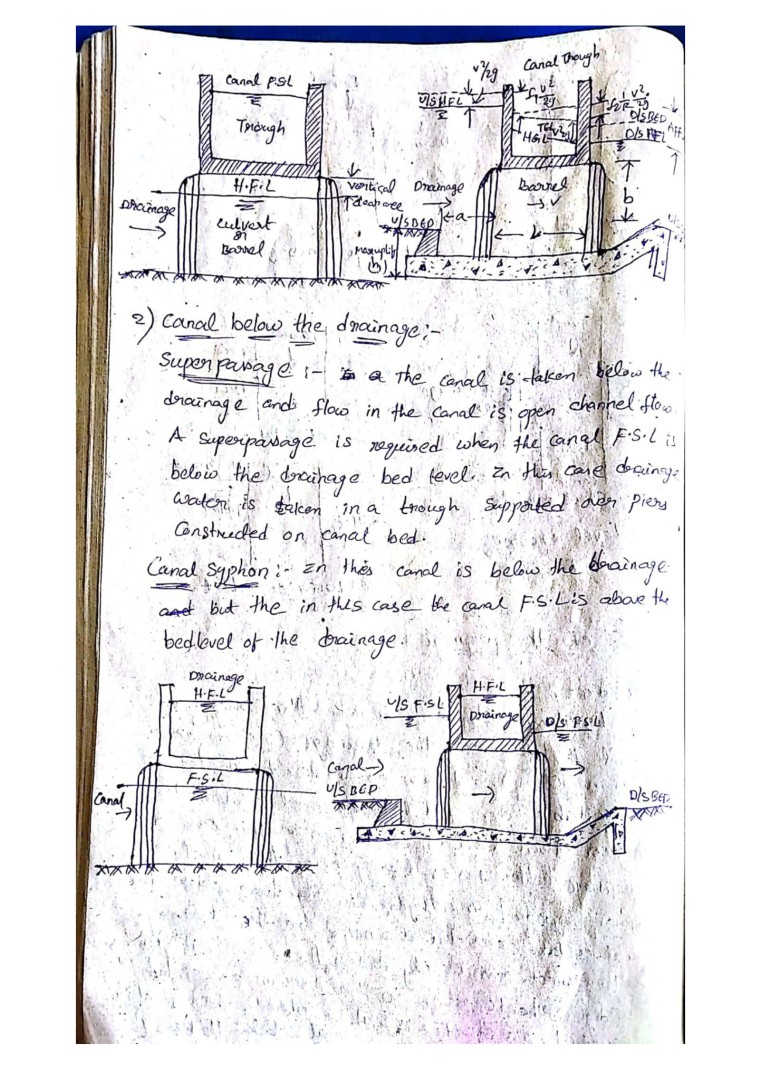 Canal F.S.L
Trough
H.F.L
vertical
clearance
Drainage
culvert
or
Barrel
Canal Trough
v²/2g
U/S HFL
D/S BED
D/S HFL
H.G.L
Drainage
Barrel
→ V
b
U/S BED
a
L
(h)
2) Canal below the drainage:-
Superpassage :- The canal is taken below the
drainage and flow in the canal is open channel flow.
A superpassage is required when the canal F.S.L is
below the drainage bed level. In this case drainage
water is taken in a trough supported over piers
Constructed on canal bed.
Canal Syphon:- In this canal is below the drainage
and but the in this case the canal F.S.L is above the
bed level of the drainage.
Drainage
H.F.L
F.S.L
Canal
U/S F.S.L
H.F.L
Drainage
D/S F.S.L
Canal →
U/S BED
D/S BED